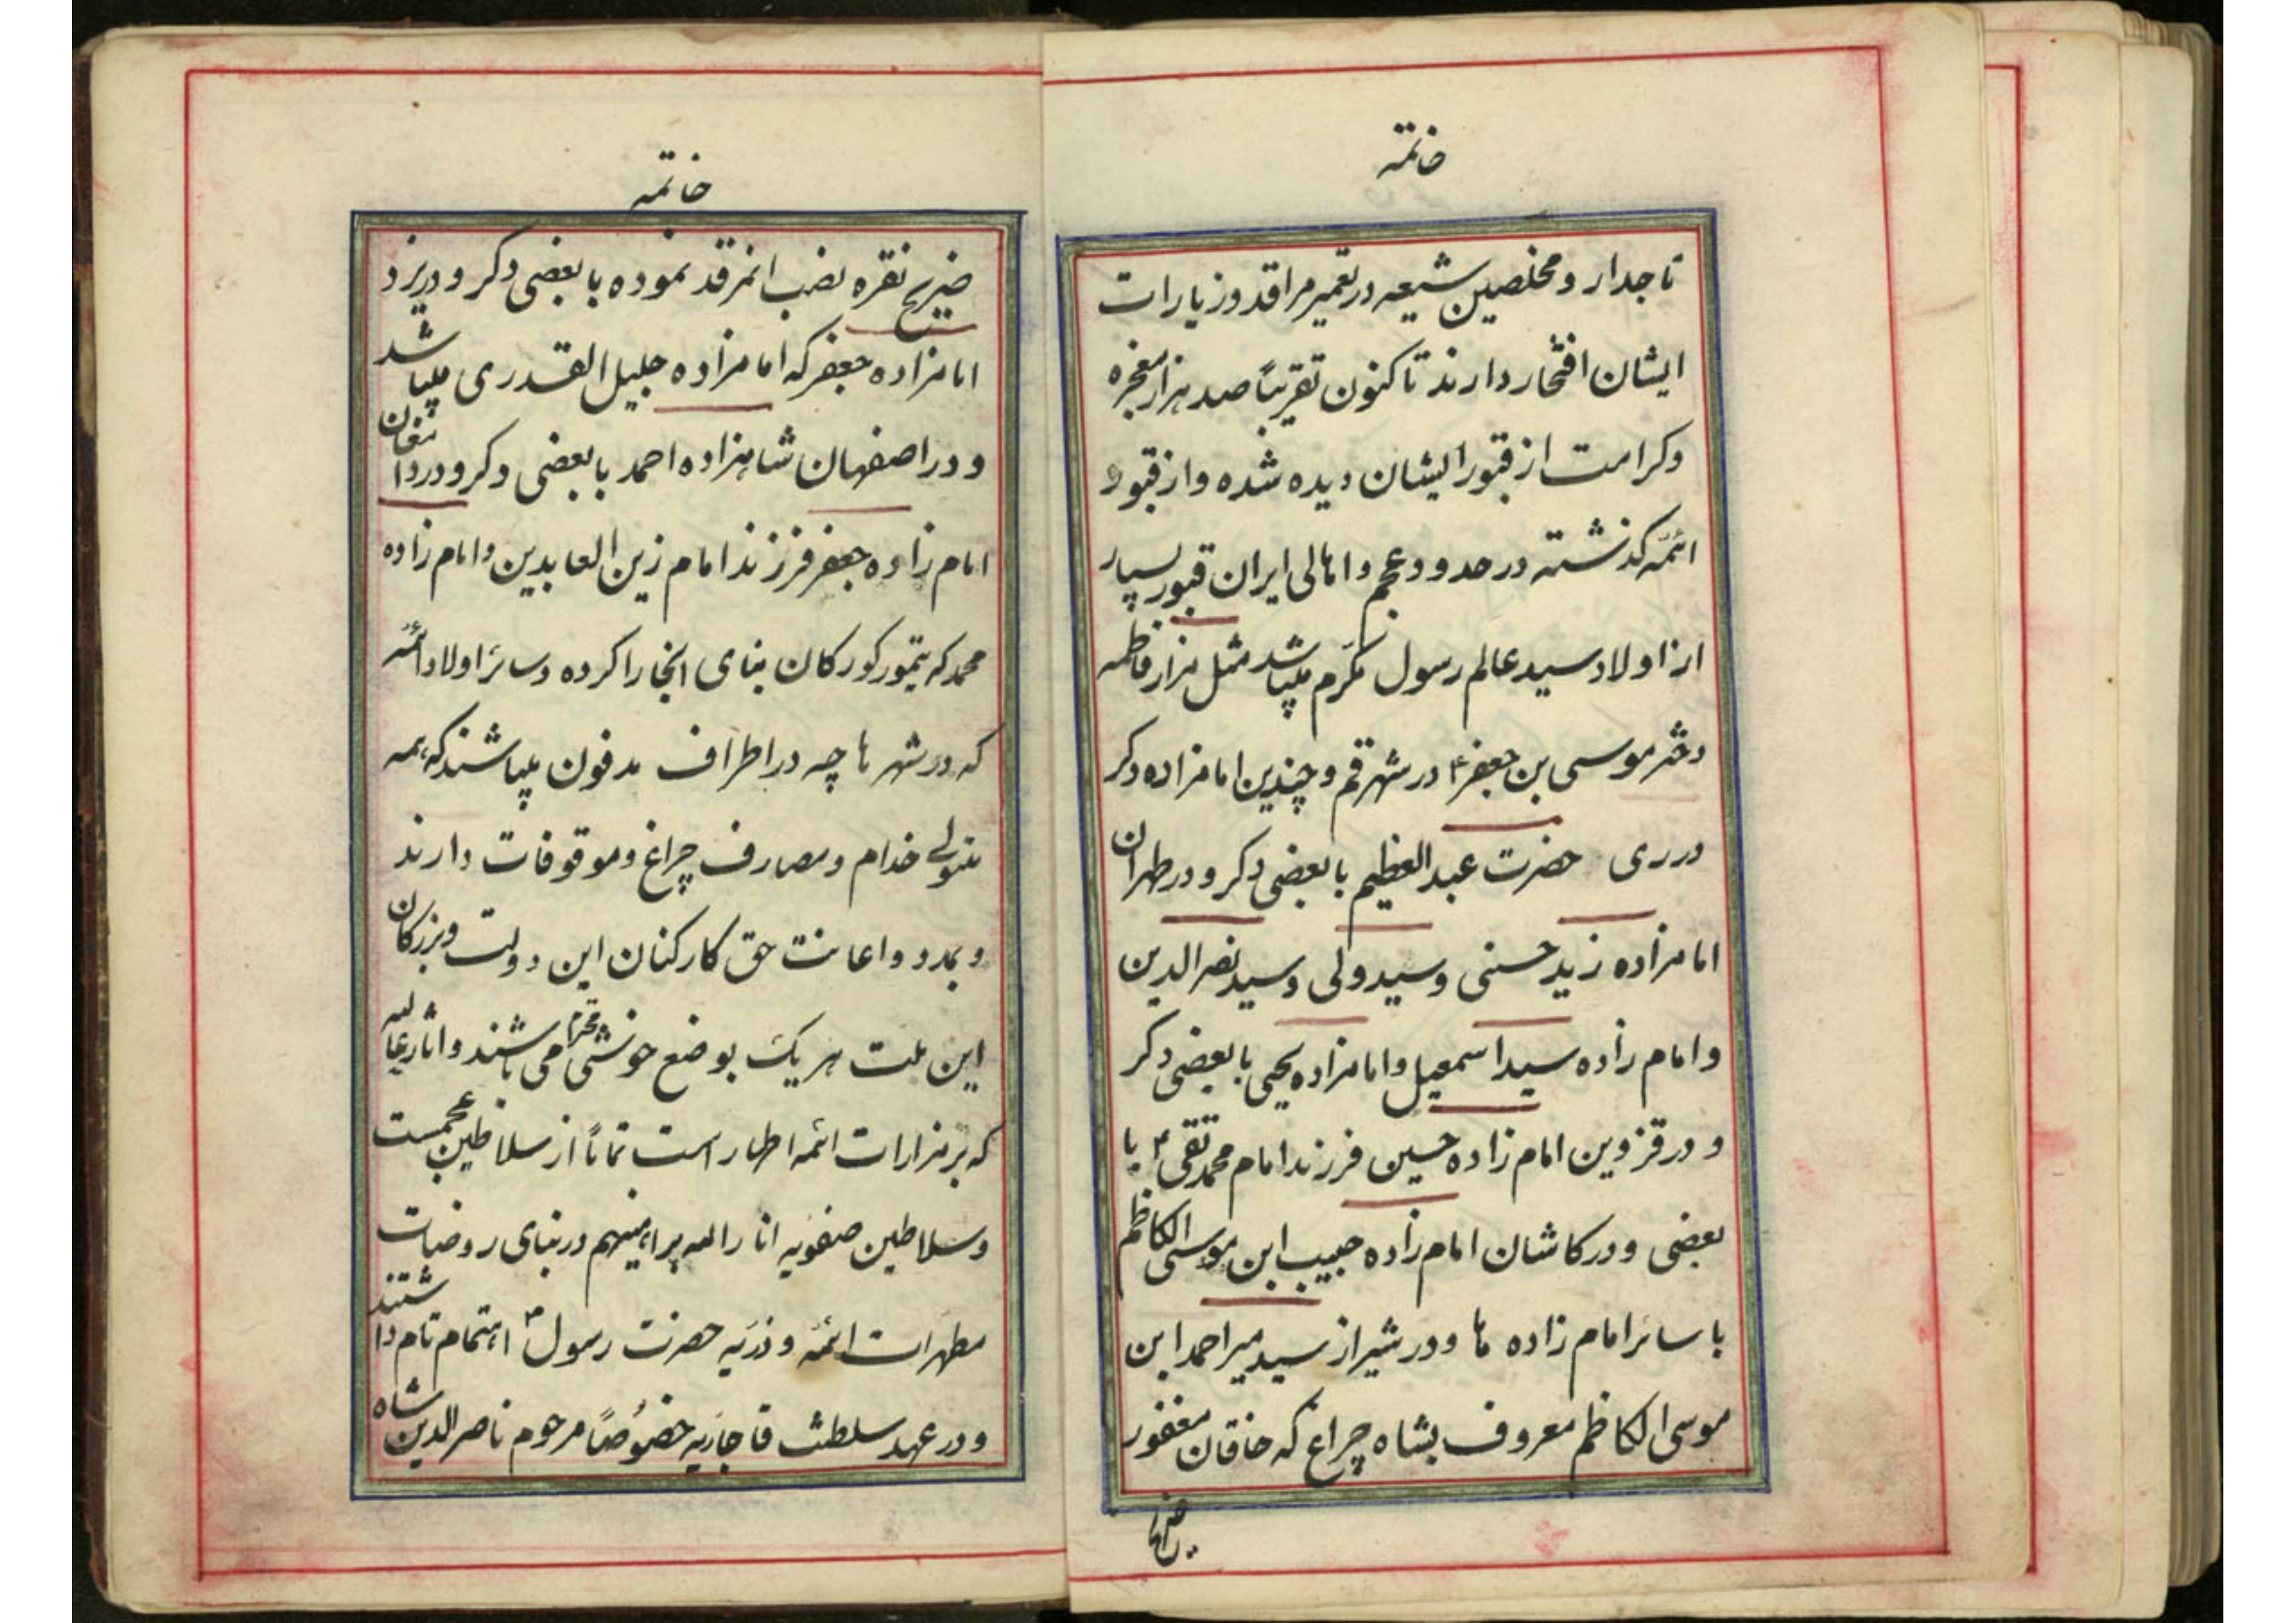 خاتمه
تاجدار و مخلصین شیعه در تعمیر مراقد و زیارات
ایشان افتخار دارند تا کنون تقریباً صد هزار معجزه
و کرامت از قبور ایشان دیده شده و از قبور
ائمّه کذشته در حدود عجم و اهالی ایران قبور بسیار
از اولاد سید عالم رسول مکرّم میباشد مثل مزار فاطمه
دختر موسی بن جعفر ۴ در شهر قم و چندین امامزاده دکر
در ری حضرت عبدالعظیم با بعضی دکر و در طهران
امامزاده زید حسنی و سید ولی و سید نصرالدین
و امام زاده سید اسمعیل و امامزاده یحیی با بعضی دکر
و در قزوین امام زاده حسین فرزند امام محمد تقی ۴ با
بعضی و در کاشان امام زاده حبیب ابن موسی الکاظم
با سائر امام زاده ها و در شیراز سید میر احمد ابن
موسی الکاظم معروف بشاه چراغ که خاقان مغفور
ضریح
خاتمه
ضریح نقره نصب انمرقد نموده با بعضی دکر و در یزد
امامزاده جعفر که امامزاده جلیل القدری میباشد
و در اصفهان شاهزاده احمد با بعضی دکر و در دامغان
امام زاده جعفر فرزند امام زین العابدین و امام زاده
محمد که تیمور کورکان بنای انجا را کرده و سائر اولاد ائمّه
که در شهر ها چه در اطراف مدفون میباشند که همه
متولی خدام و مصارف چراغ و موقوفات دارند
و بمدد و اعانت حق کارکنان این دولت و بزرکان
این ملت هر یک بوضع خوشی محترم می باشند و اثار عالیه
که بر مزارات ائمه اطهار است تماماً از سلاطین عجمست
و سلاطین صفویه انار الله براهینهم در بنای روضات
مطهرات ائمّه و ذرّیه حضرت رسول ص اهتمام تام داشتند
و در عهد سلطنت قاجاریه خصُوصاً مرحوم ناصرالدین شاه